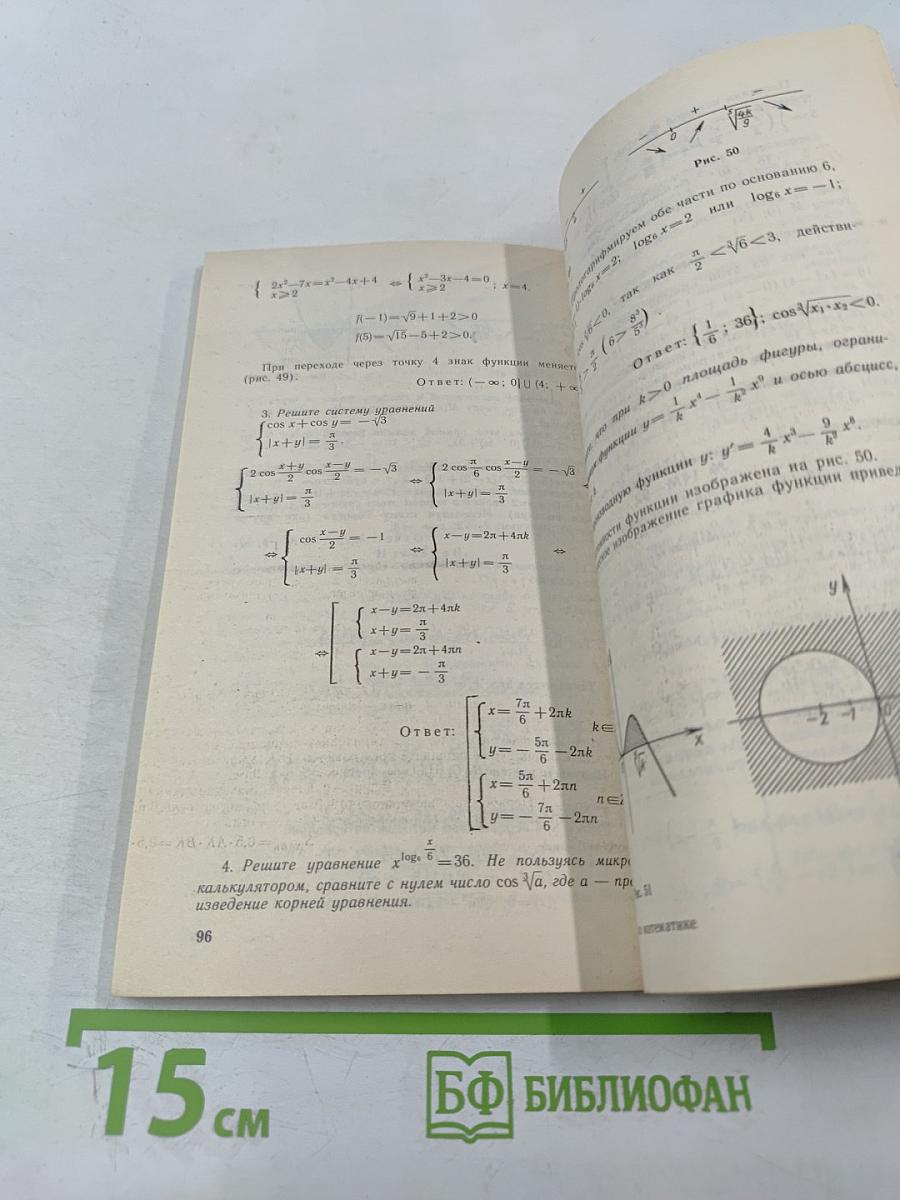 { 2x²—7x=x²—4x+4 ⇔ { x²—3x—4=0 ; x=4.
x⩾2 x⩾2
f(—1)=√9+1+2>0
f(5)=√15—5+2>0.
При переходе через точку 4 знак функции
(рис. 49). Ответ: (—∞; 0]∪(4; +∞
3. Решите систему уравнений
{ cos x+cos y= —√3
|x+y|= π/3 .
{ 2 cos (x+y)/2 cos (x—y)/2 = —√3 ⇔ { 2 cos π/6 cos (x—y)/2 = —√3
|x+y|= π/3 |x+y|= π/3
⇔ { cos (x—y)/2 = —1 ⇔ { x—y=2π+4πk ⇔
|x+y|= π/3 |x+y|= π/3
⇔ [ { x—y=2π+4πk
x+y= π/3
{ x—y=2π+4πn
x+y= — π/3
Ответ: [ { x= 7π/6 +2πk
k∈
y= — 5π/6 —2πk
{ x= 5π/6 +2πn
n∈
y= — 7π/6 —2πn
4. Решите уравнение x^(log₆ x/6)=36. Не пользуясь
калькулятором, сравните с нулем число cos ∛a, где a —
изведение корней уравнения.
96
— 0 + ⁵√(4k/9) —
Рис. 50
обе части по основанию 6,
log₆ x=2; log₆ x=2 или log₆ x=—1;
∛6<0, так как π/2 <∛6<3, действи-
> π/2 (6> 8³/5³) .
Ответ: {1/6 ; 36}; cos ∛(x₁·x₂)<0.
что при k>0 площадь фигуры, ограни-
функции y= 1/k x⁴— 1/k² x⁹ и осью абсцисс,
функции y: y′= 4/k x³— 9/k² x⁸.
функции изображена на рис. 50.
изображение графика функции
y
—2 —1 0
x
51
математике
15 см
БФ БИБЛИОФАН